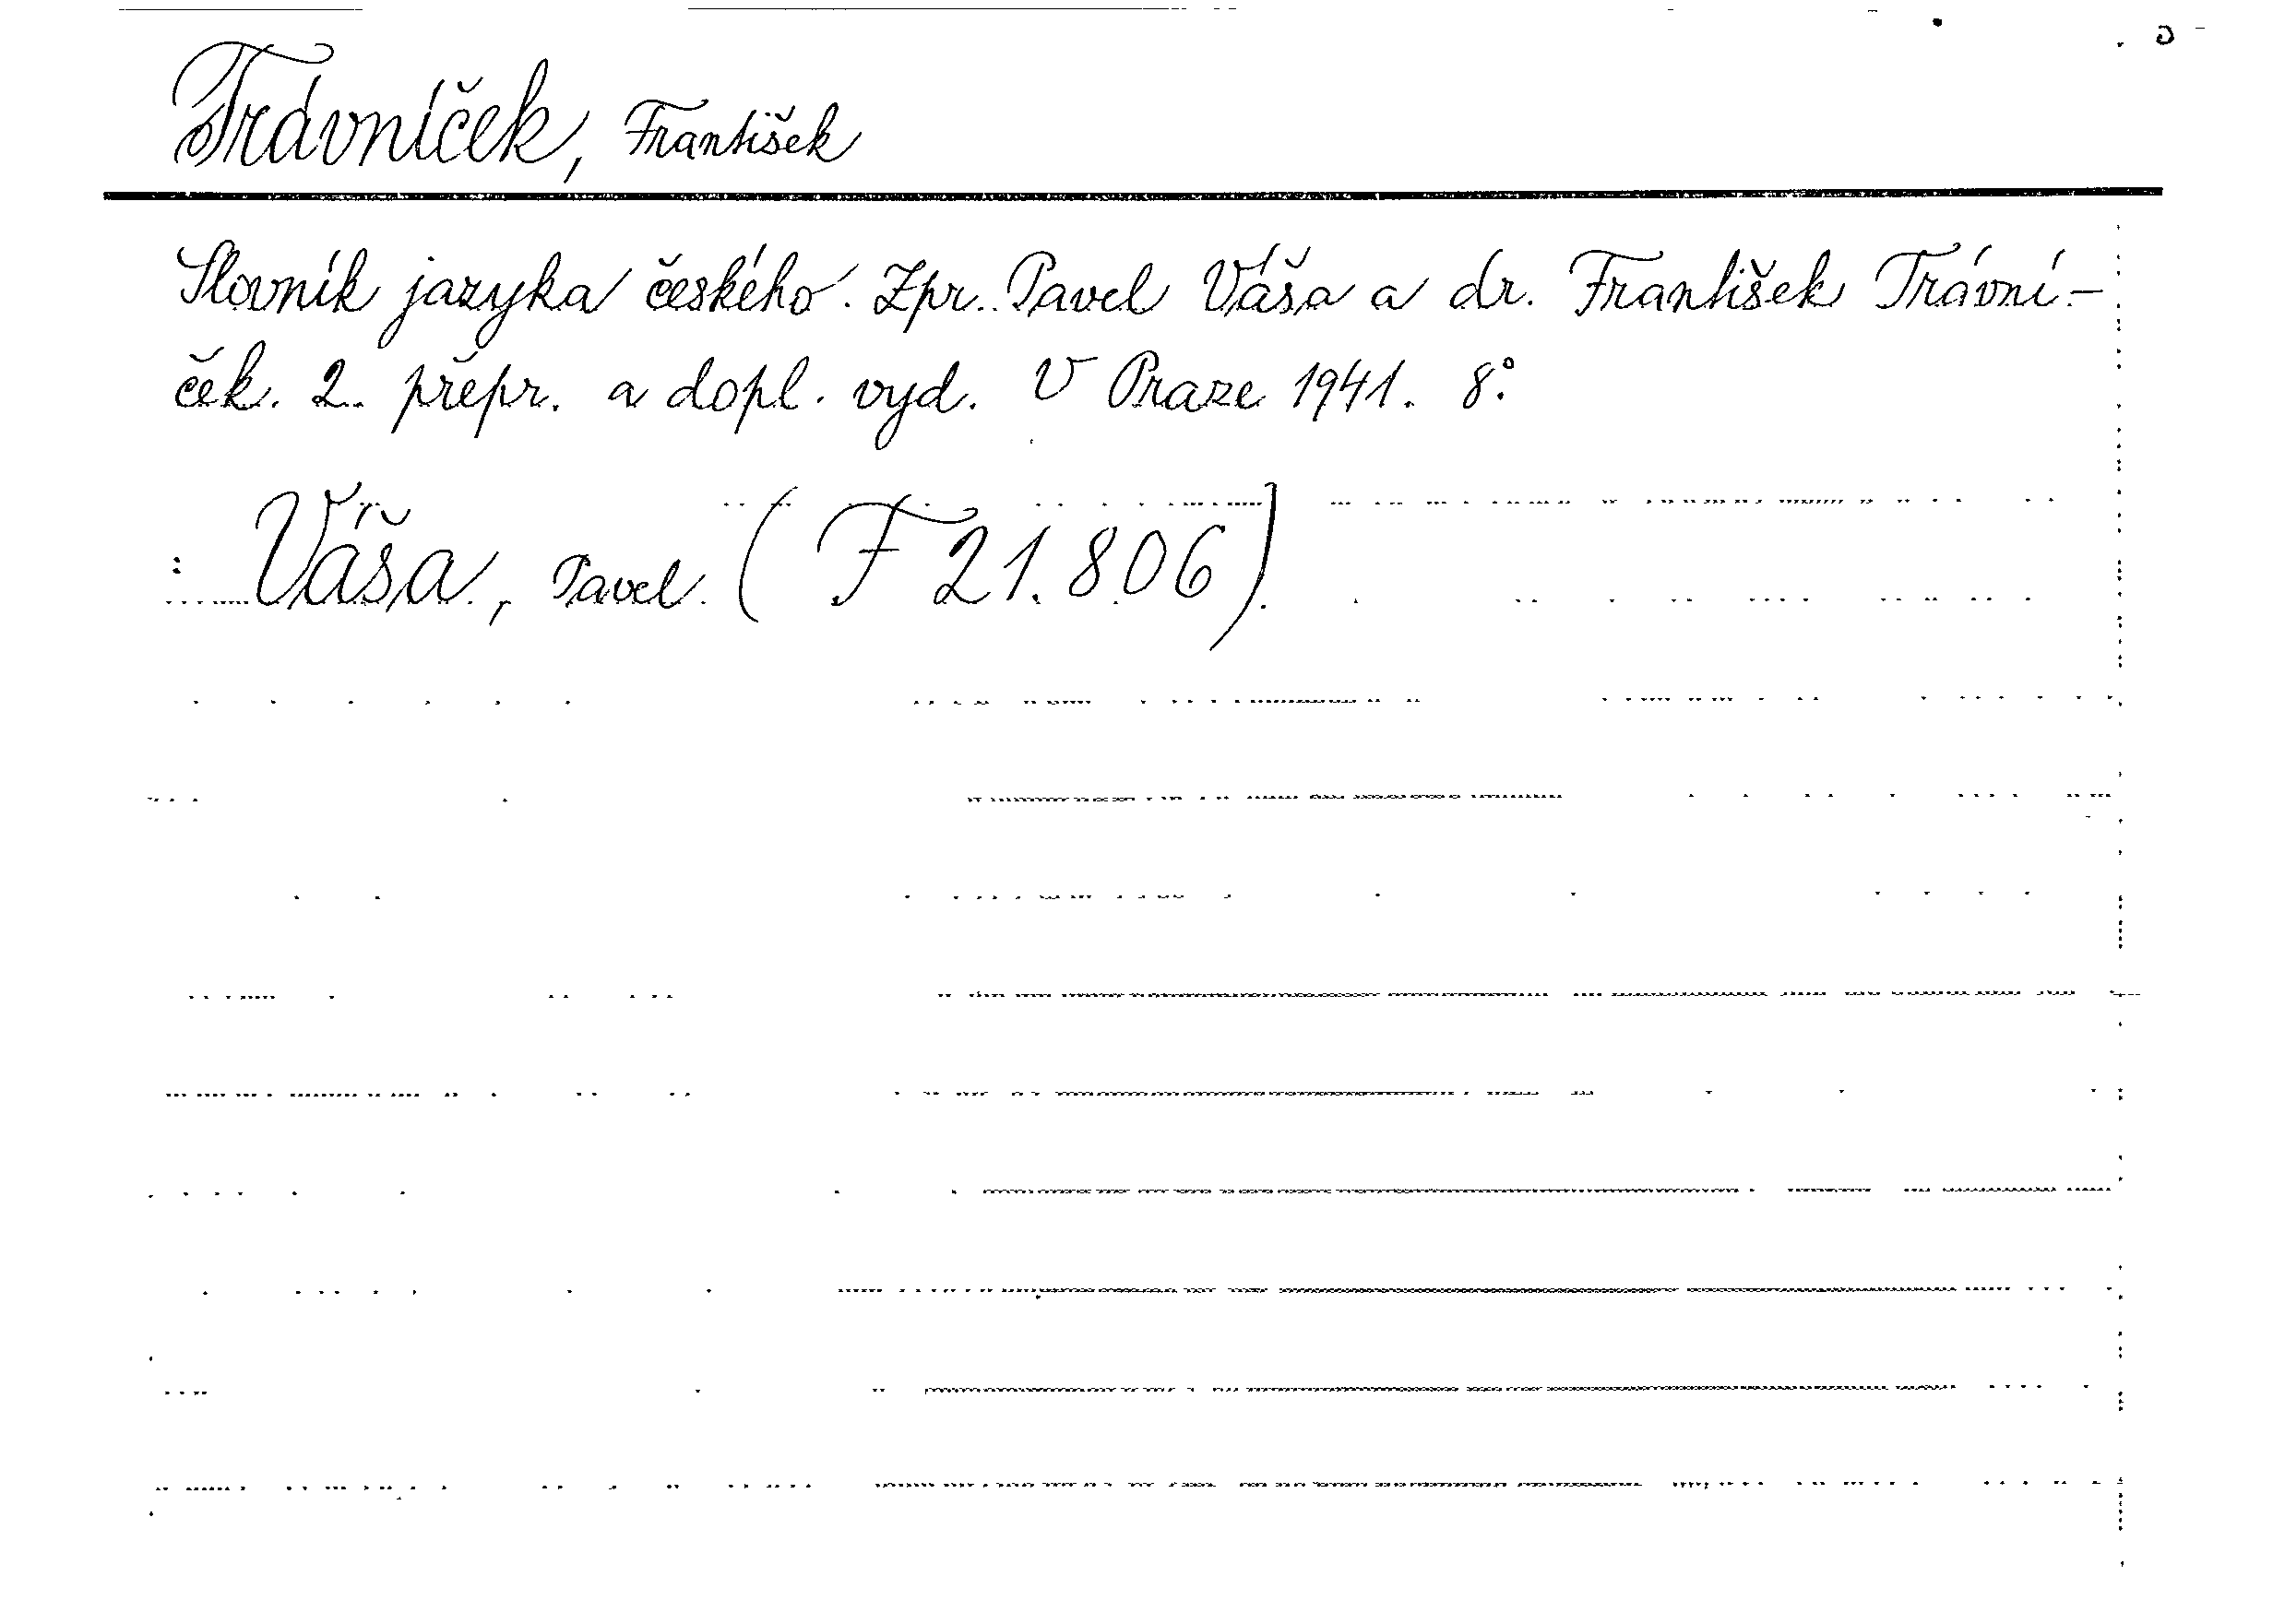 Trávníček, František
Slovník jazyka českého. Zpr. Pavel Váša a dr. František Trávní-
ček. 2. přepr. a dopl. vyd. V Praze 1941. 8°.
: Váša, Pavel. (F 21.806).